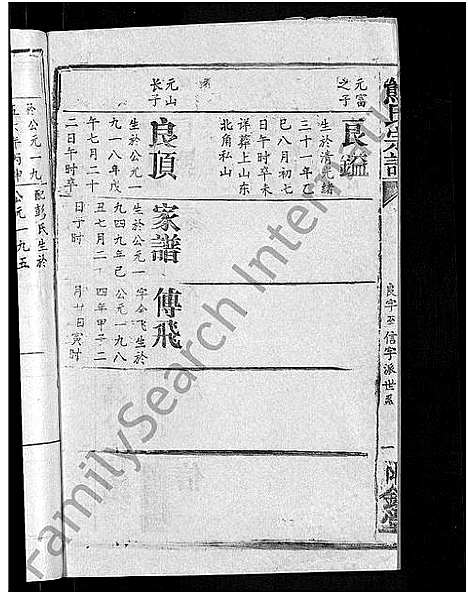 熊氏宗譜
良字至信字派世系
一
元富
之子
良鑑
生於清光緒
三十一年乙
巳八月初七
日午時卒未
詳葬上山東
北角私山
元山
長子
良頂
生於公元一
九一八年戊
午七月二十
二日午時卒
家譜
生於公元一
九四九年己
丑七月二
日丁时
傳飛
字金飞生於
公元一九八
四年甲子二
月廿日寅时
配彭氏生於
公元一九五
於公元一九
五六年丙申
FamilySearch International